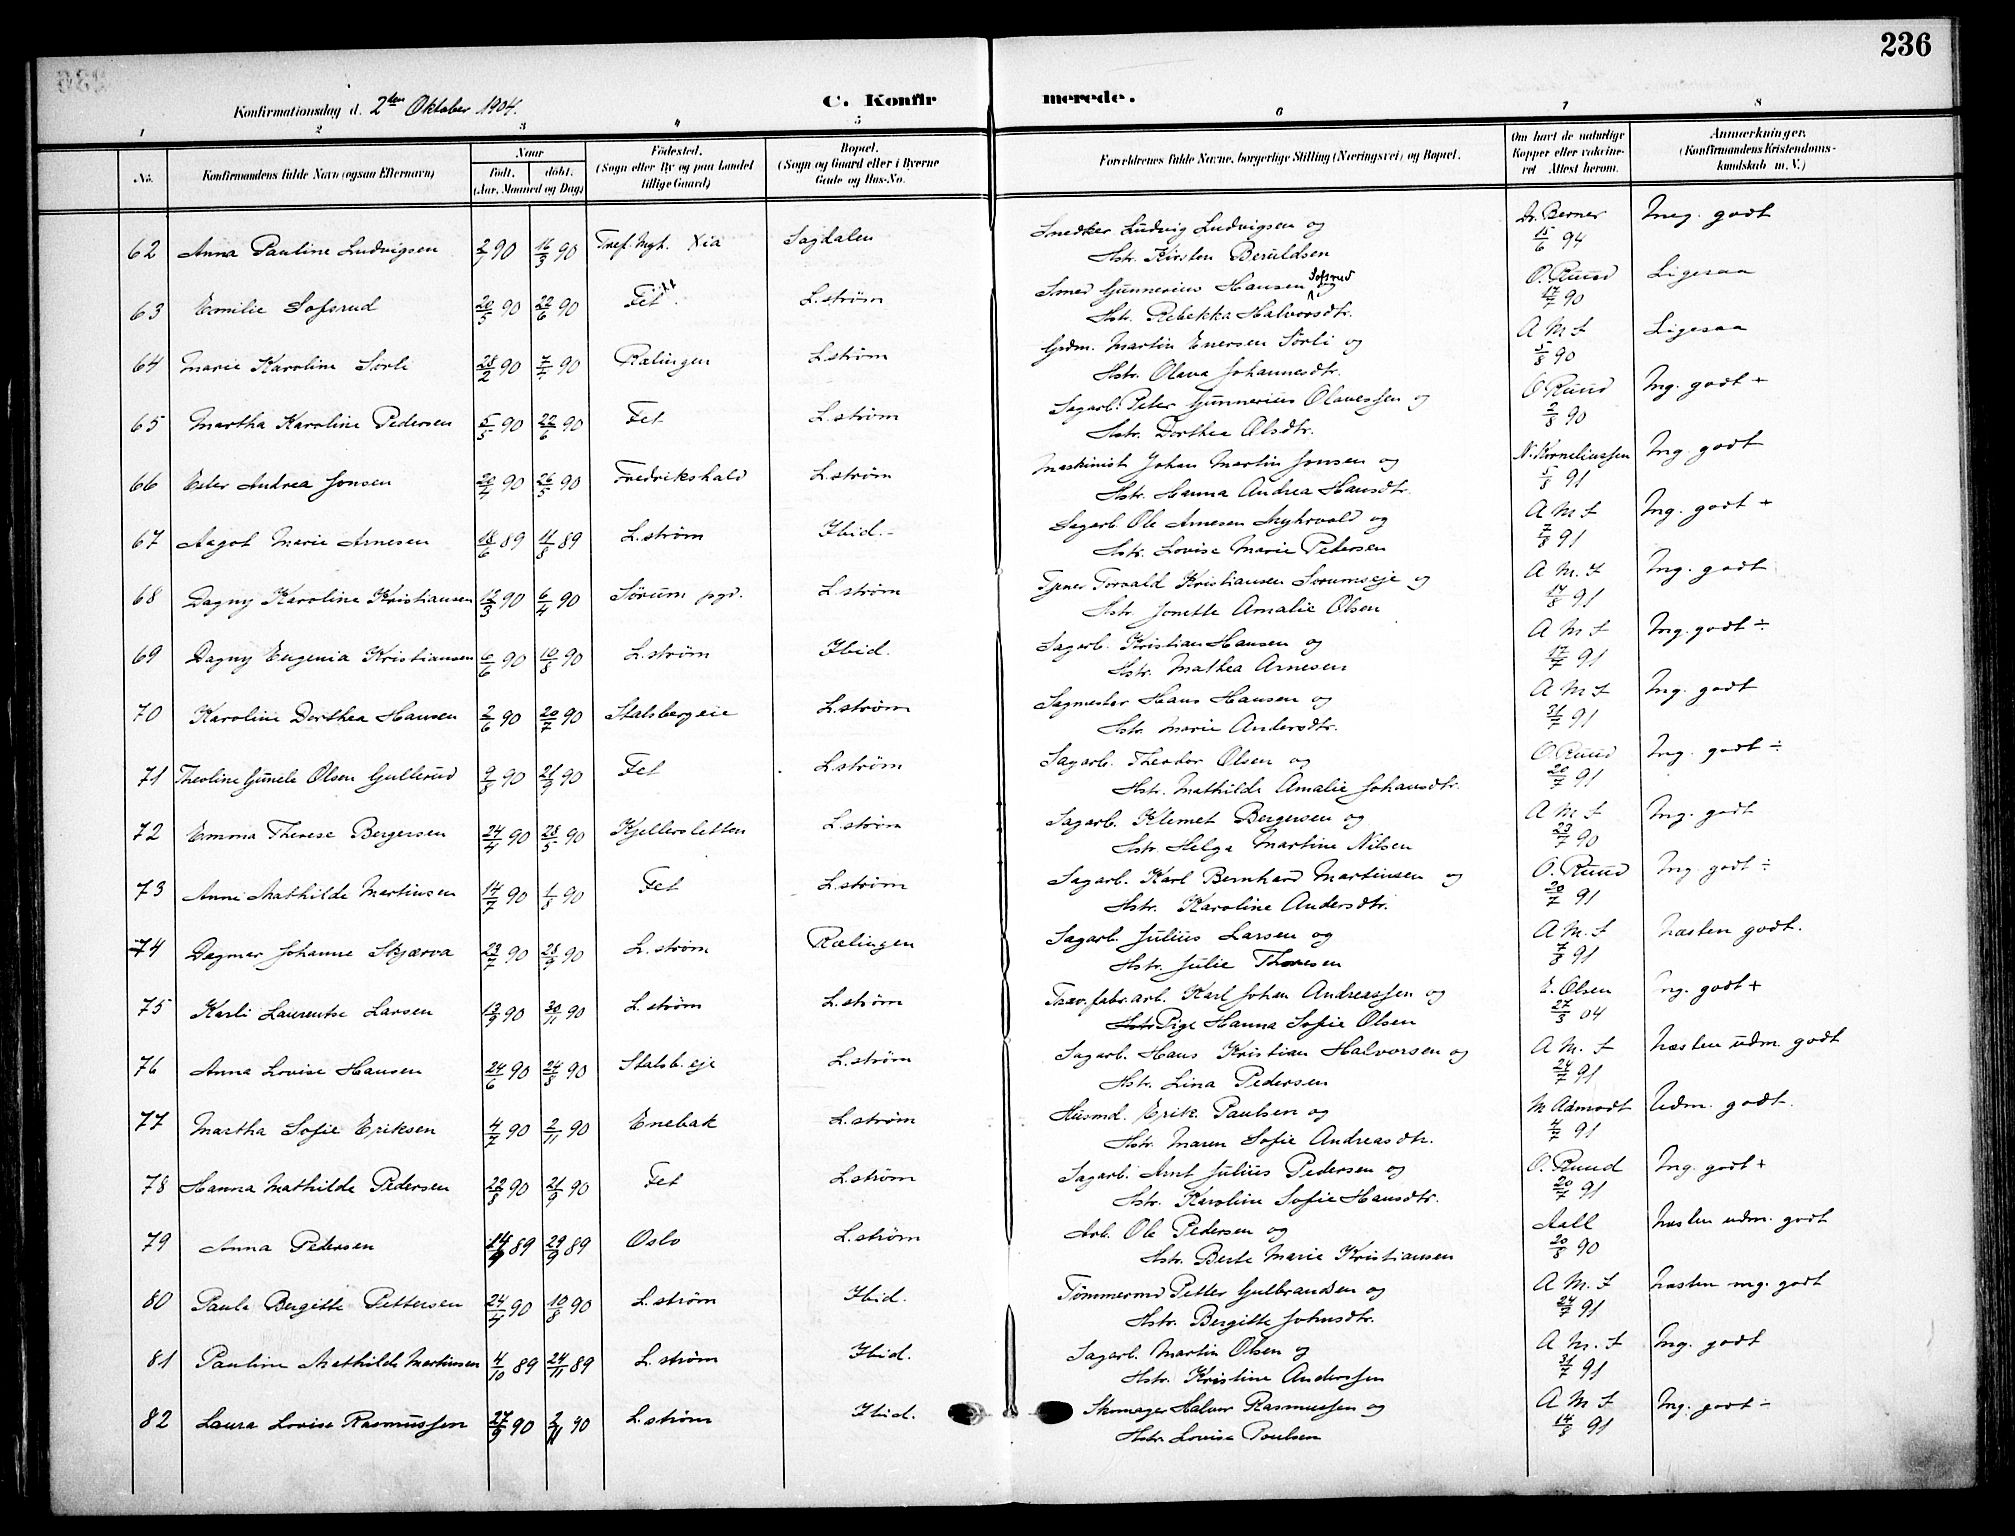 236
Konfirmationsdag d. 2den Oktober 1904.
C. Konfirmerede.
1 2 3 4 5 6 7 8
No. Konfirmandens fulde Navn (ogsaa Efternavn) Naar født. døbt. (Aar, Maaned og Dag) Fødested. (Sogn eller By og paa Landet tillige Gaard) Bopæl. (Sogn og Gaard eller i Byerne Gade og Hus-No. Forældrenes fulde Navne, borgerlige Stilling (Næringsvei) og Bopæl. Om havt de naturlige Kopper eller vakcineret Attest herom. Anmærkninger. (Konfirmandens Kristendomskundskab m. V.)
62 Anna Pauline Ludvigsen 2/1 90 16/3 90 Xia Sagdalen Snedker Ludvig Ludvigsen og Dr. Berner Meg. godt
Hstr. Kirsten Beruldsen 15/6 94
63 Emilie Sofsrud 20/5 90 22/6 90 Fet L.strøm Smed Gunnerius Hansen Sofsrud og O. Ruud Ligesaa
Hstr. Rebekka Halvorsdtr. 17/7 90
64 Marie Karoline Sørli 28/2 90 7/4 90 Rælingen L.strøm Grdm. Martin Enersen Sørli og A M F Ligesaa
Hstr. Olava Johannesdtr. 5/8 90
65 Martha Karoline Pedersen 5/5 90 22/6 90 Fet L.strøm Sagarb. Peter Gunnerius Olavessen og O Ruud Mg. godt +
Hstr. Dorthea Olsdtr. 2/8 90
66 Ester Andrea Jonsen 20/4 90 26/5 90 Fredrikshald L.strøm Maskinist Johan Martin Jonsen og N. Korneliussen Mg. godt
Hstr. Hanna Andrea Hansdtr. 5/8 91
67 Aagot Marie Arnesen 18/6 89 11/8 89 L.strøm Ibid. Sagarb. Ole Arnesen Myhrvold og A M F Mg. godt +
Hstr. Lovise Marie Pedersen 7/8 91
68 Dagny Karoline Kristiansen 12/3 90 6/4 90 Sørum pgd. L.strøm Tjener Torvald Kristiansen Sorumseje og A M. F Mg. godt
Hstr. Jonette Amalie Olsen 14/8 91
69 Dagny Eugenia Kristiansen 6/6 90 10/8 90 L.strøm Ibid. Sagarb. Kristian Hansen og A M F Mg. godt ÷
Hstr. Mathea Arnesen 17/7 91
70 Karoline Dorthea Hansen 2/6 90 20/7 90 Stalsbergeie L.strøm Sagmester Hans Hansen og A M F Mg. godt
Hstr. Marie Andersdtr. 31/7 91
71 Theoline Gunela Olsen Gullerud 9/8 90 21/9 90 Fet L.strøm Sagarb. Theodor Olsen og O. Ruud Mg. godt ÷
Hstr. Mathilde Amalie Johansdtr. 20/7 91
72 Emma Therese Bergersen 24/4 90 28/5 90 Kjellersletten L.strøm Sagarb. Klemet Bergersen og A M F Mg. godt
Hstr. Helga Martine Nilsen 23/7 90
73 Anne Mathilde Martinsen 14/7 90 1/8 90 Fet L.strøm Sagarb. Karl Bernhard Martinsen og O. Ruud Mg. godt ÷
Hstr. Karoline Andersdtr. 20/7 91
74 Dagmar Johanne Skjærva 23/7 90 28/9 90 L.strøm Rælingen Sagarb. Julius Larsen og A M. F Næsten godt.
Hstr. Julie Thoresen 7/8 91
75 Karli Laurentse Larsen 13/9 90 30/11 90 L.strøm L.strøm Træv.fabr.arb. Karl Johan Andreassen og E. Olsen ng. godt +
Hstr Pige Hanna Sofie Olsen 27/3 04
76 Anna Lovise Hansen 24/6 90 24/8 90 Stalsb.eje L.strøm Sagarb. Hans Kristian Halvorsen og A M. F Næsten udm. godt
Hstr. Lina Pedersen 24/7 91
77 Martha Sofie Eriksen 4/7 90 2/11 90 Enebak L.strøm Husmd. Erik Paulsen og M Aamodt Udm. godt.
Hstr. Maren Sofie Andreasdtr. 4/7 91
78 Hanna Mathilde Pedersen 22/8 90 21/9 90 Fet L.strøm Sagarb. Arnt Julius Pedersen og O. Ruud Mg. godt +
Hstr. Karoline Sofie Hansdtr. 20/7 91
79 Anna Pedersen 14/9 89 29/9 89 Oslo L.strøm Arb. Ole Pedersen og Aall Næsten udm. godt
Hstr. Berte Marie Kristiansen 20/8 90
80 Paula Bergitte Pettersen 24/4 90 10/8 90 L.strøm Ibid. Tømmermd Petter Gulbrandsen og A M. F Næsten mg. godt
Hstr. Bergitte Johnsdtr. 24/7 91
81 Pauline Mathilde Martinsen 4/10 89 24/11 89 L.strøm Ibid. Sagarb. Martin Olsen og A M. F Mg. godt
Hstr. Kristine Anderssen 31/7 91
82 Laura Lovise Rasmussen 27/9 90 2/11 90 L.strøm Ibid. Skomager Halvor Rasmussen og A M F Mg. godt ÷
Hstr. Lovise Poulsen 14/8 91